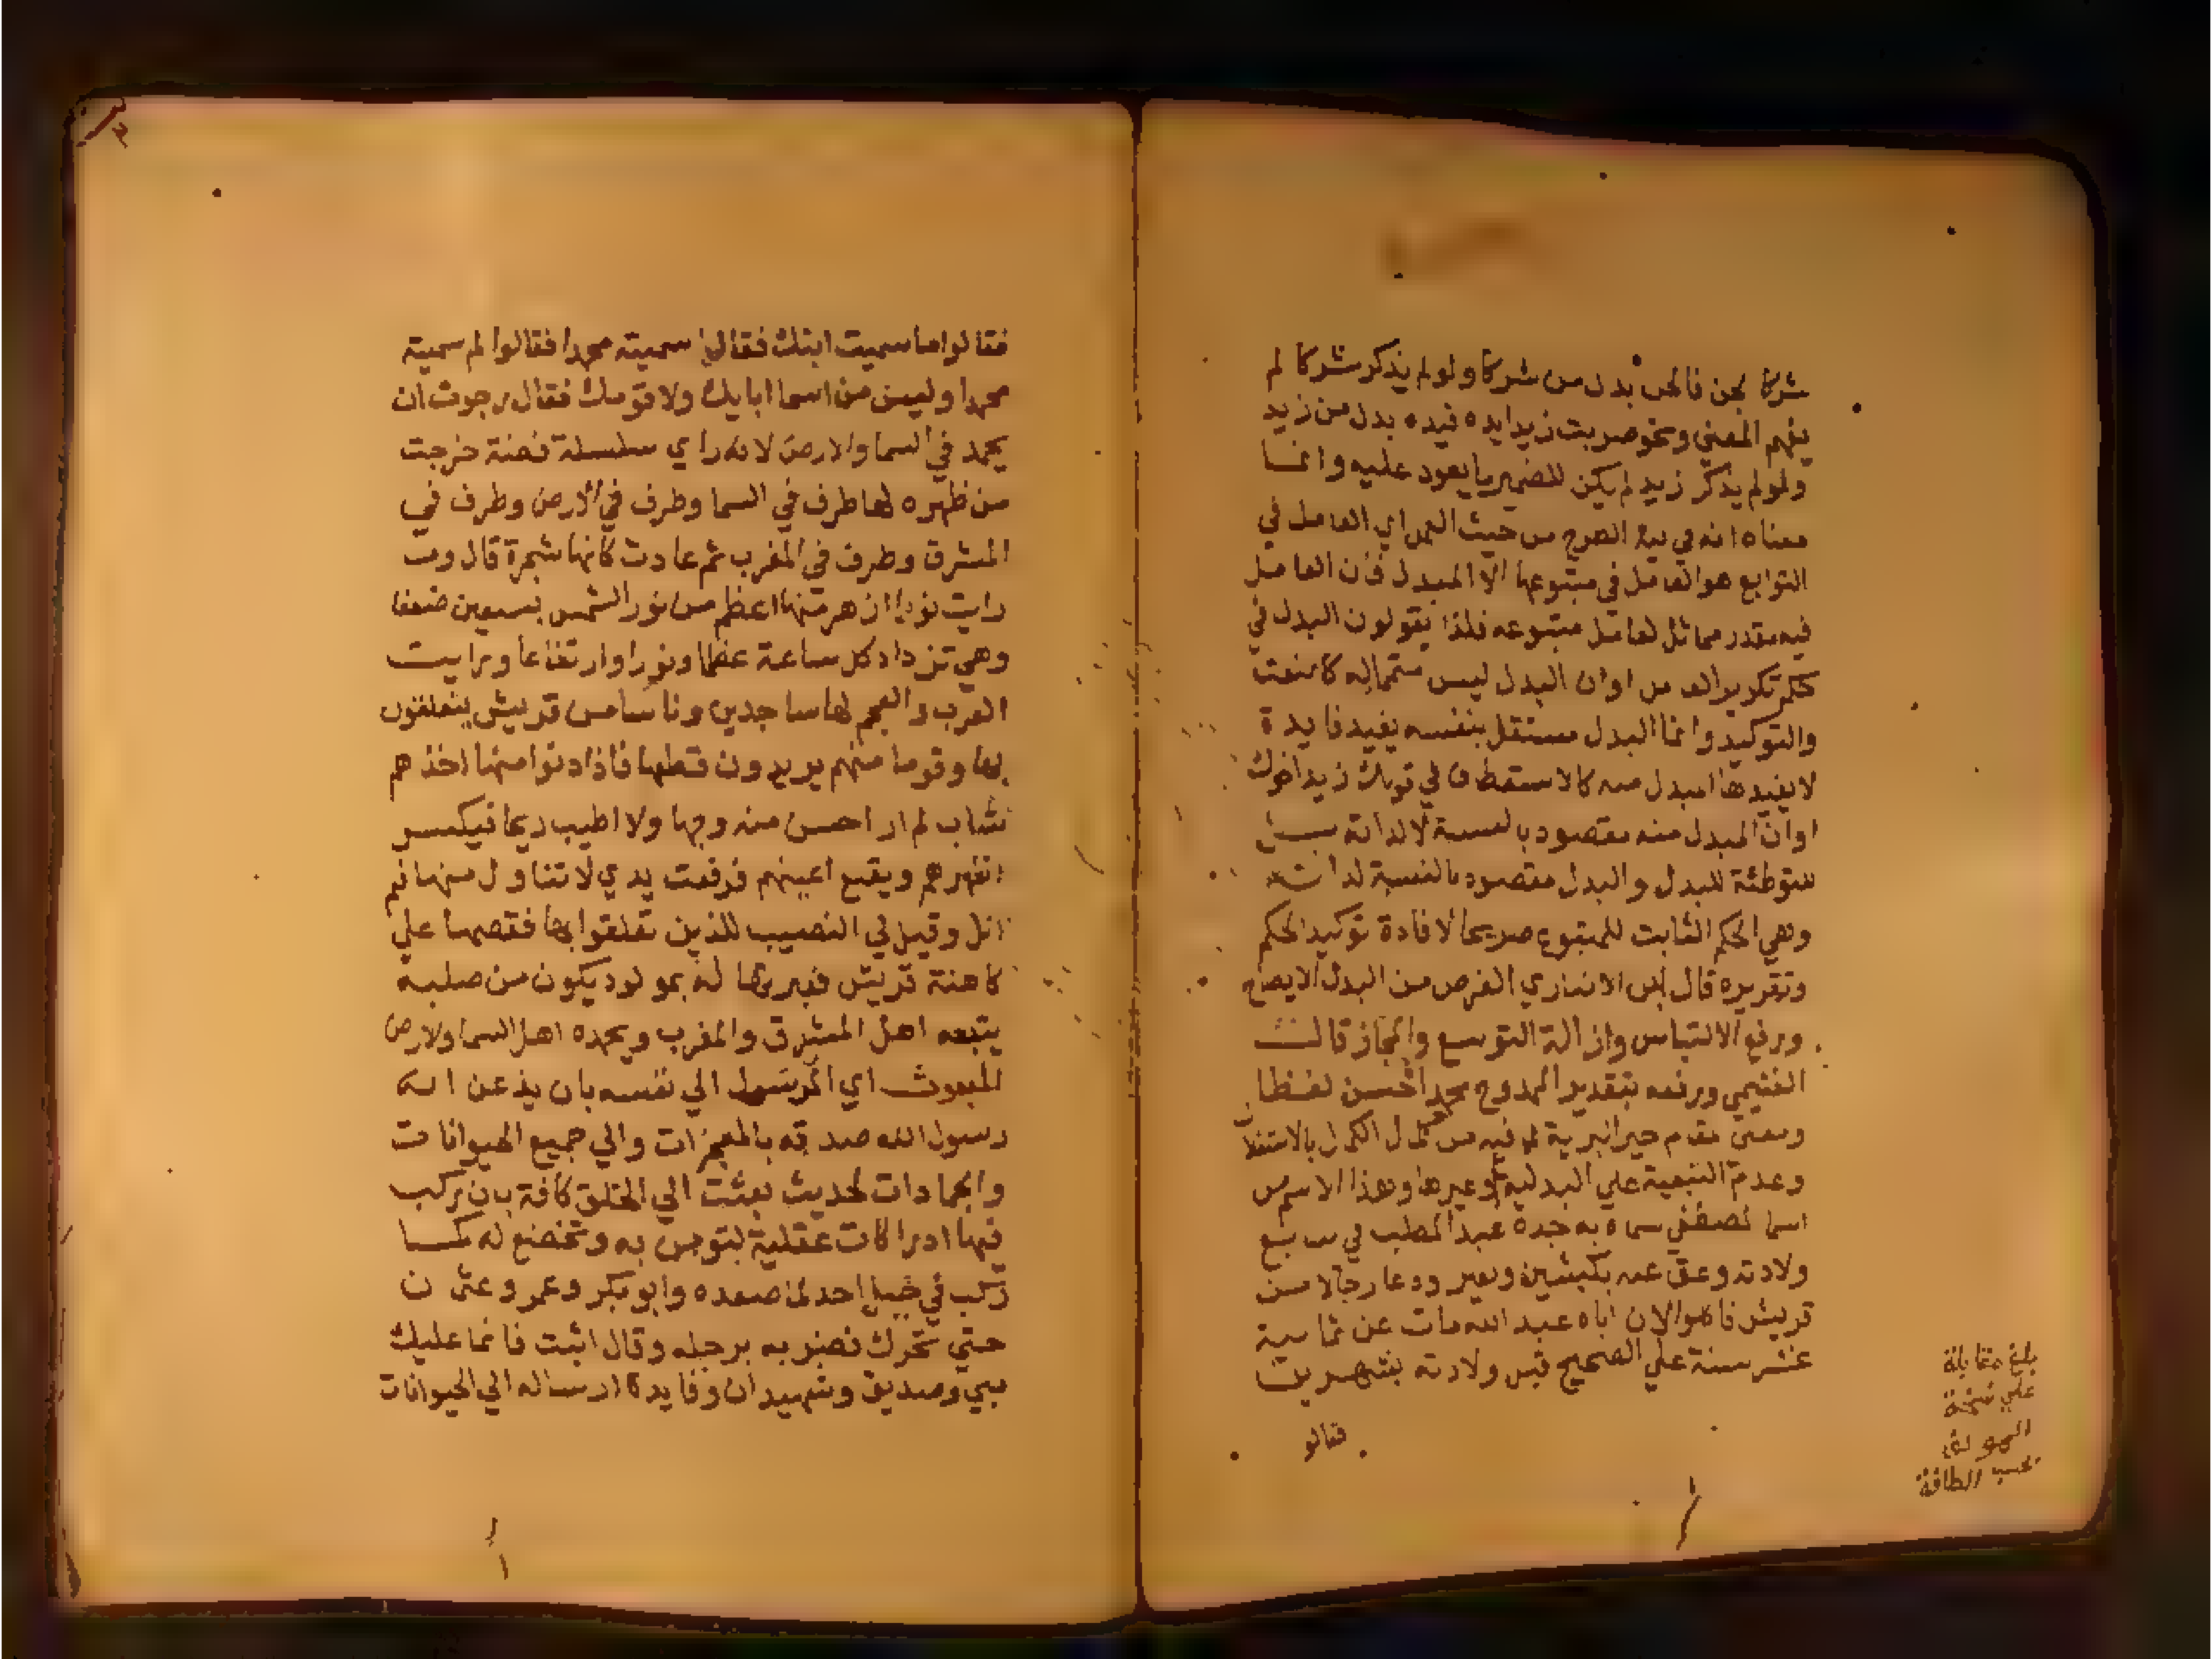 شركا لجن فالجن بدل من شركا ولو لم يذكر شركا لم
يفهم المعني ونحو ضربت زيدا يده فيده بدل من زيد
ولو لم يذكر زيد لم يكن للضمير ما يعود عليه وانما
معناه انه في نية الطرح من حيث العمل اي العامل في
التوابع هو العامل في متبوعها الا المبدل فان العامل
فيه مقدر مماثل لعامل متبوعه فلذا يقولون البدل في
حكم تكرير العامل او ان البدل ليس متمما له كالنعت
والتوكيد وانما البدل مستقل بنفسه يفيد فايدة
لا يفيدها المبدل منه كالاستعطاف في قولك زيد اخوك
او ان المبدل منه مقصود بالنسبة لا لذاته بل
للتوطئة للبدل والبدل مقصود بالنسبة لذاته
وهي الحكم الثابت للمتبوع صريحا لافادة توكيد الحكم
وتقريره قال ابن الانباري الغرض من البدل الايضاح
ورفع الالتباس وازالة التوسع والمجاز قال
الغنيمي ورفعه بتقدير الممدوح محمد احسن لفظا
ومعني مقدم خير البرية لما فيه من كمال الكمال بالاستقلال
وعدم التبعية علي البدلية وغيرها وهذا الاسم من
اسما المصطفي سماه به جده عبد المطلب في سابع
ولادته وعق عنه بكبشين وبعير ودعا رجالا من
قريش فاكلوا لان اباه عبد الله مات عن ثمانية
عشر سنة علي الصحيح قبل ولادته بشهرين
فقالو
بلغ مقابلة
علي نسخة
المولف
بحسب الطاقة
فقالوا ما سميت ابنك فقال سميته محمدا فقالوا لم سميته
محمدا وليس من اسما ابايك ولا قومك فقال رجوت ان
يحمد في السما والارض لانه راي سلسلة فضة خرجت
من ظهره لها طرف في السما وطرف في الارض وطرف في
المشرق وطرف في المغرب ثم عادت كانها شجرة قال وما
رايت نورا ازهر منها اعظم من نور الشمس بسبعين ضعفا
وهي تزداد كل ساعة عظما ونورا وارتفاعا ورايت
العرب والعجم لها ساجدين وناسا من قريش يتعلقون
بها وقوما منهم يريدون قطعها فاذا دنوا منها اخذهم
شاب لم ار احسن منه وجها ولا اطيب ريحا فيكسر
اظهرهم ويقلع اعينهم فرفعت يدي لاتناول منها فلم
انل وقيل لي النصيب للذين تعلقوا بها فقصها علي
كاهنة قريش فعبرتها له بمولود يكون من صلبه
يتبعه اهل المشرق والمغرب ويحمده اهل السما والارض
المبعوث اي المرسول الي نفسه بان يذعن انه
رسول الله صدقه بالمعجزات والي جميع الحيوانات
والجمادات لحديث بعثت الي الخلق كافة بان ركب
فيها ادراكات عقلية لتومن به وتخضع له كما
ركب في جبل احد لما صعده وابو بكر وعمر وعثمان
حتي تحرك فضربه برجله وقال اثبت فانما عليك
نبي وصديق وشهيدان وفايدة ارساله الي الحيوانات